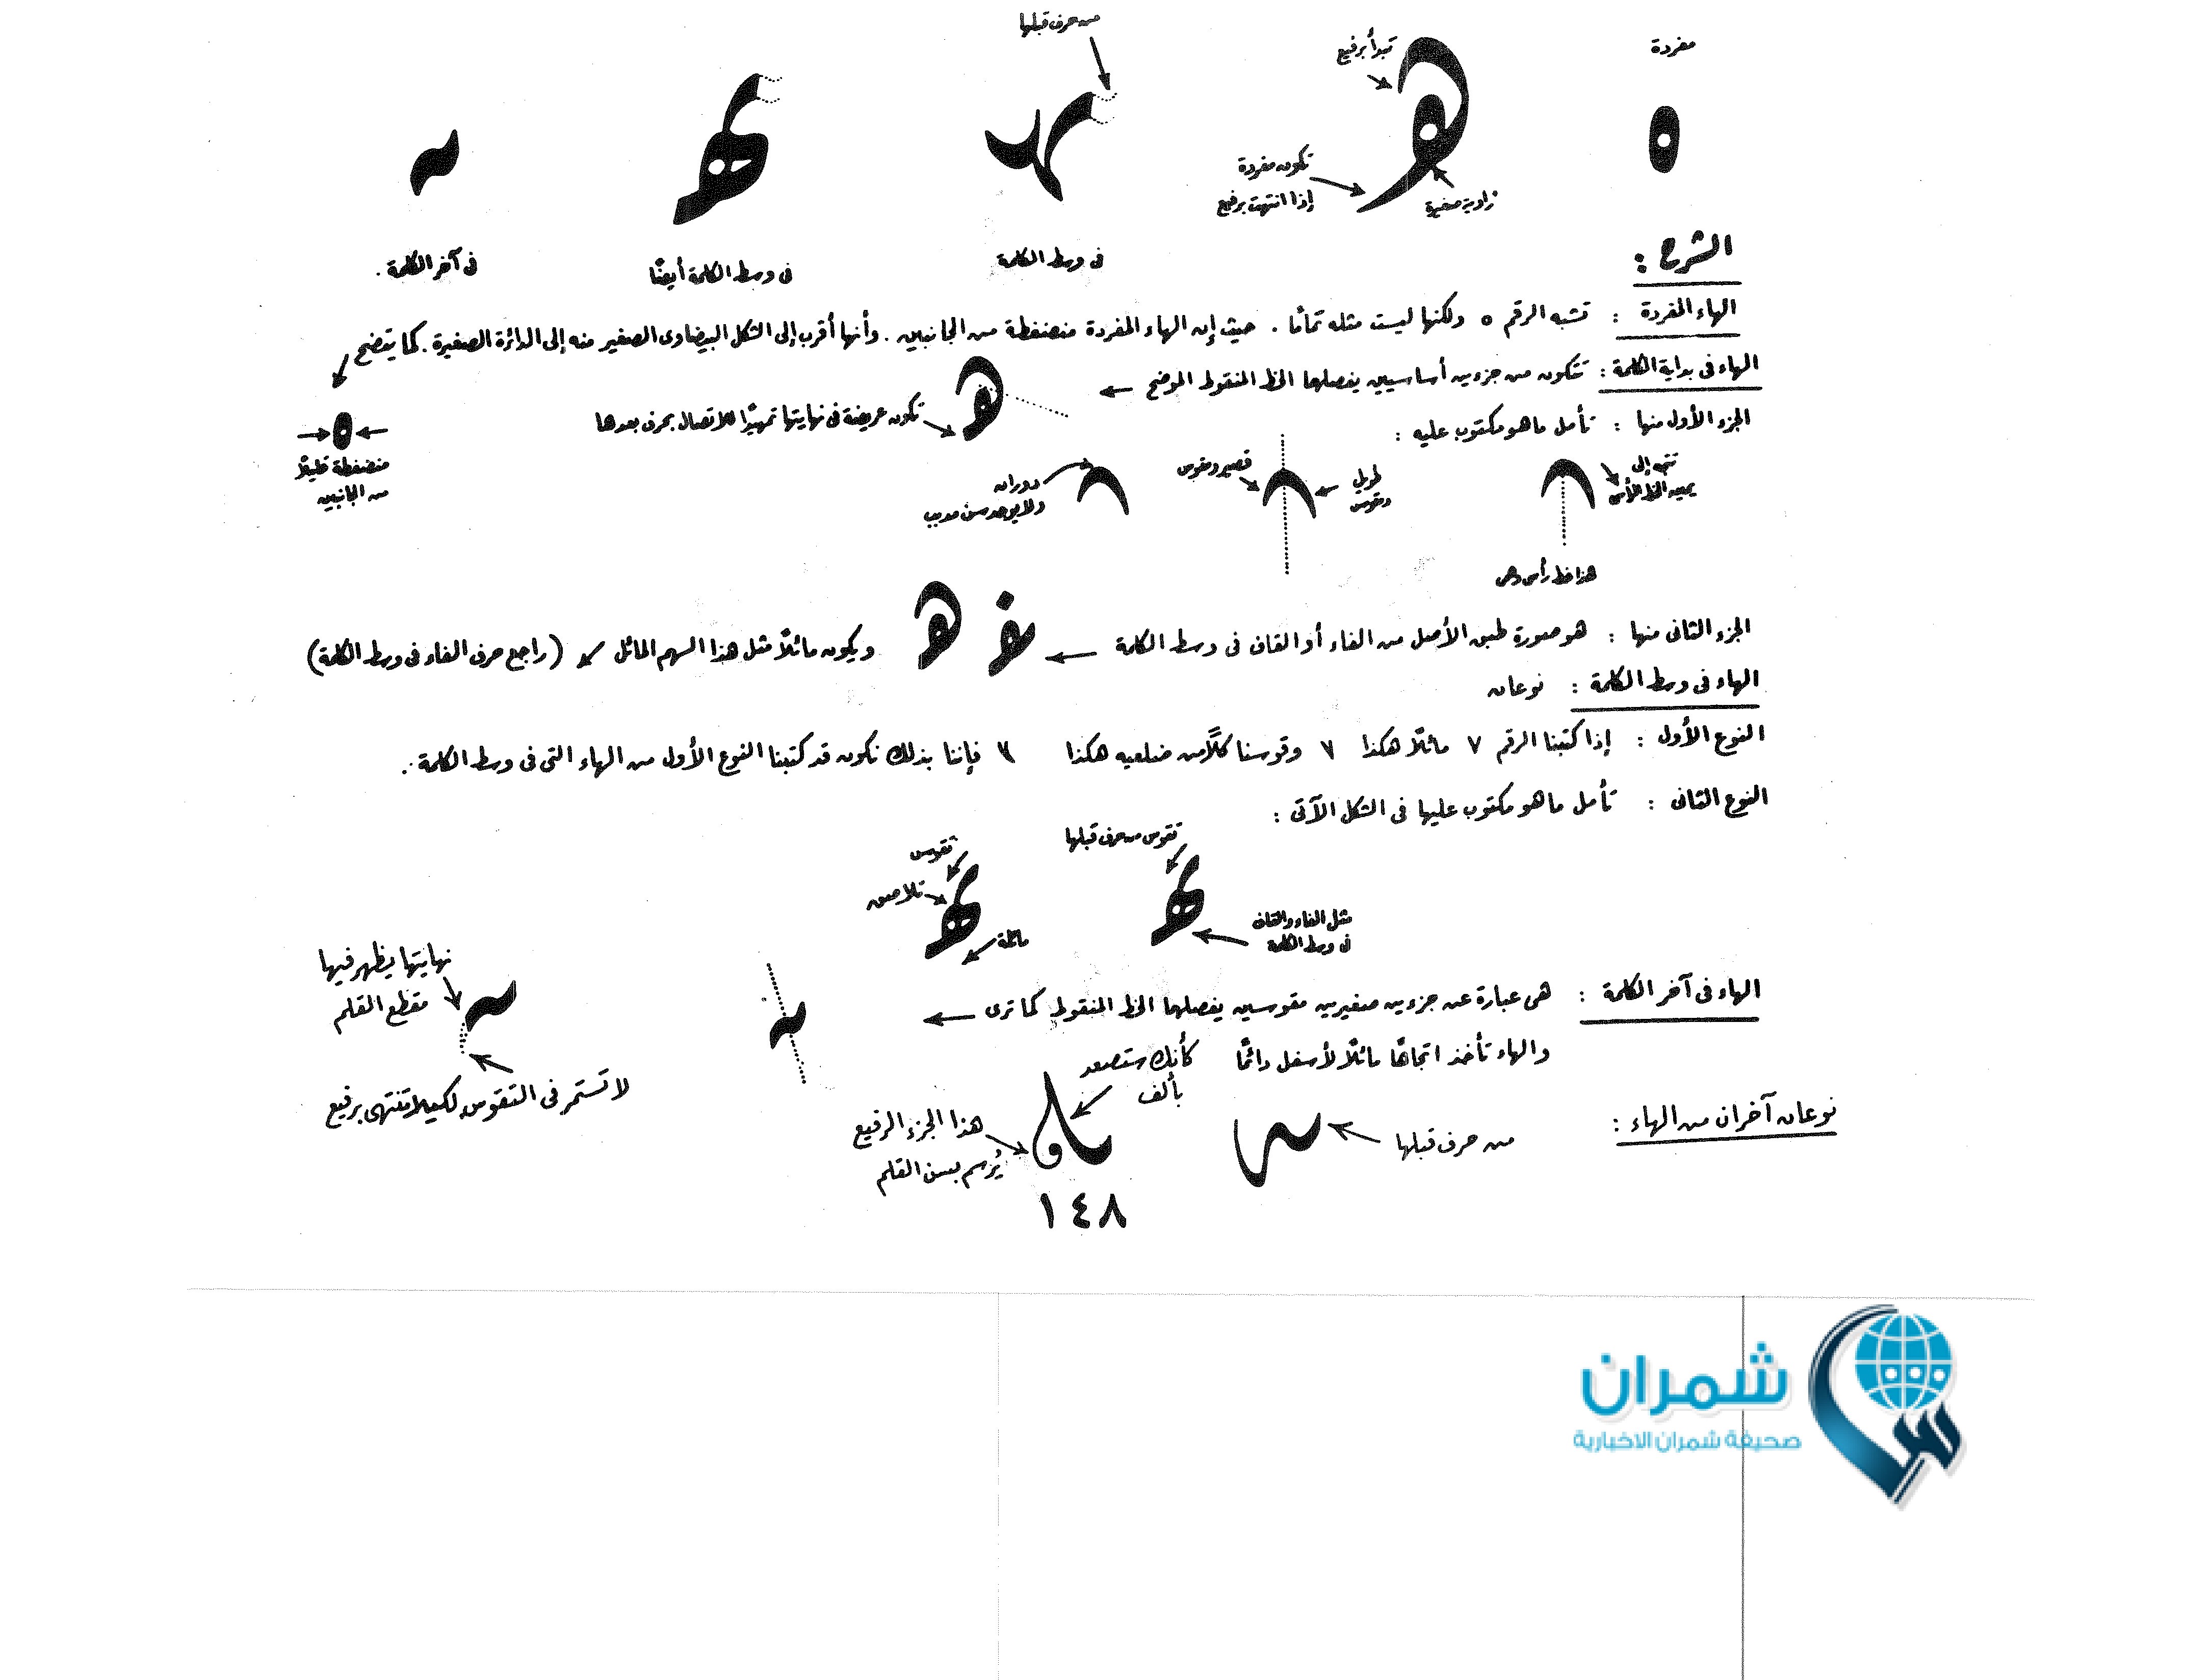 من حرف قبلها
مفردة
تبدأ برفيع
تكون مفردة
إذا انتهت برفيع
زاوية صغيرة
فى وسط الكلمة
فى وسط الكلمة أيضًا
فى آخر الكلمة .
الشرح :
الهاء المفردة : تشبه الرقم ٥ ولكنها ليست مثله تمامًا . حيث إن الهاء المفردة منضغطة من الجانبين . وأنها أقرب إلى الشكل البيضاوى الصغير منه إلى الدائرة الصغيرة . كما يتضح
الهاء فى بداية الكلمة : تتكون من جزءين أساسيين يفصلهما الخط المنقوط الموضح
تكون عريضة فى نهايتها تمهيدًا للاتصال بحرف بعدها
منضغطة قليلًا
من الجانبين
الجزء الأول منها : تأمل ما هو مكتوب عليه :
تنتهى إلى
يمين الخط الرأسى
طويل
ومقوس
قصير ومقوس
دوران
ولا يوجد سن مدبب
هذا خط رأسى وهمى
الجزء الثانى منها : هو صورة طبق الأصل من الفاء أو القاف فى وسط الكلمة
ويكون مائلًا مثل هذا السهم المائل (راجع حرف الفاء فى وسط الكلمة)
الهاء فى وسط الكلمة : نوعان
النوع الأول : إذا كتبنا الرقم ٧ مائلًا هكذا ٧ وقوسنا كلًا من ضلعيه هكذا ٧ فإننا بذلك نكون قد كتبنا النوع الأول من الهاء التى فى وسط الكلمة .
النوع الثانى : تأمل ما هو مكتوب عليها فى الشكل الآتى :
تقوس من حرف قبلها
مثل الفاء والقاف
فى وسط الكلمة
تقوس
تلاصق
مائلة
الهاء فى آخر الكلمة : هى عبارة عن جزءين صغيرين مقوسين يفصلهما الخط المنقوط كما ترى
نهايتها يظهر فيها
مقطع القلم
لا تستمر فى التقوس لكيلا تنتهى برفيع
والهاء تأخذ اتجاهًا مائلًا لأسفل دائمًا
كأنك ستصعد
بألف
نوعان آخران من الهاء :
من حرف قبلها
هذا الجزء الرفيع
يُرسم بسن القلم
١٤٨
شمران
صحيفة شمران الاخبارية